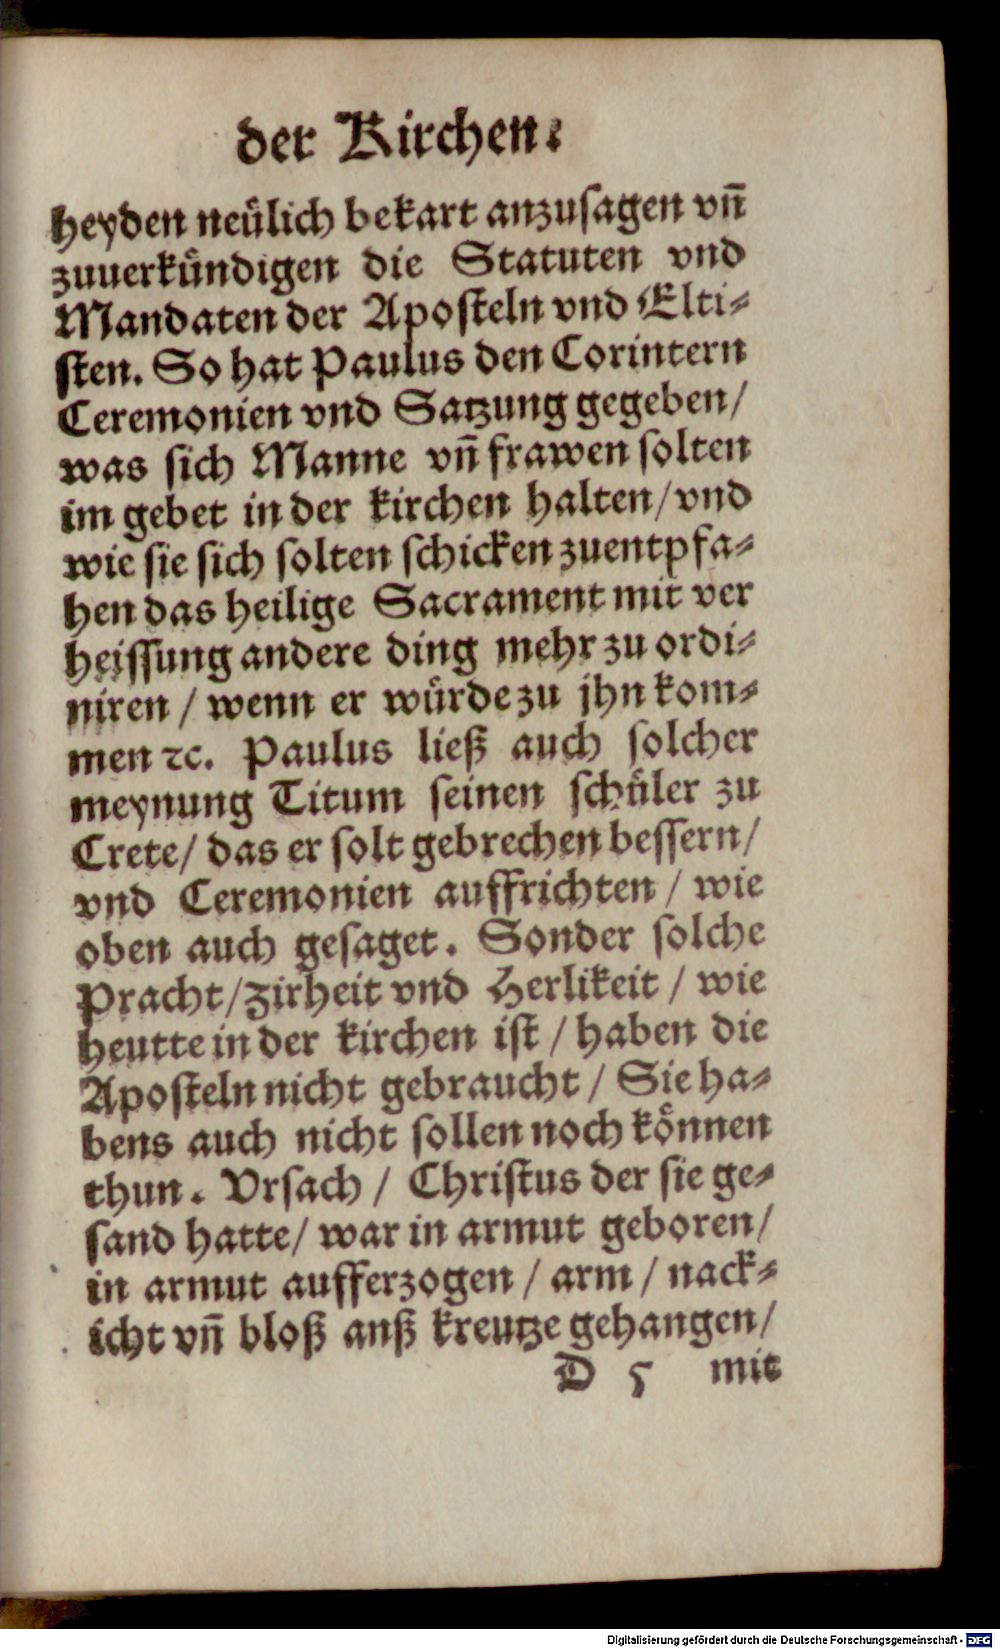 der Kirchen.
Heyden neülich bekart anzusagen vn̄
zuuerkündigen die Statuten vnd
Mandaten der Aposteln vnd Elti⸗
sten. So hat Paulus den Corintern
Ceremonien vnd Satzung gegeben/
was sich Manne vn̄ frawen solten
im gebet in der kirchen halten/ vnd
wie sie sich solten schicken zuentpfa⸗
hen das heilige Sacrament mit ver
heissung andere ding mehr zu ordi⸗
niren / wenn er würde zu jhn kom⸗
men ꝛc. Paulus ließ auch solcher
meynung Titum seinen schüler zu
Crete/ das er solt gebrechen bessern/
vnd Ceremonien auffrichten / wie
oben auch gesaget. Sonder solche
Pracht/ zirheit vnd Herlikeit / wie
heutte in der kirchen ist / haben die
Aposteln nicht gebraucht / Sie ha⸗
bens auch nicht sollen noch können
thun. Vrsach / Christus der sie ge⸗
sand hatte/ war in armut geboren/
in armut aufferzogen / arm / nack⸗
icht vn̄ bloß anß kreutze gehangen/
D 5 mit
Digitalisierung gefördert durch die Deutsche Forschungsgemeinschaft - DFG